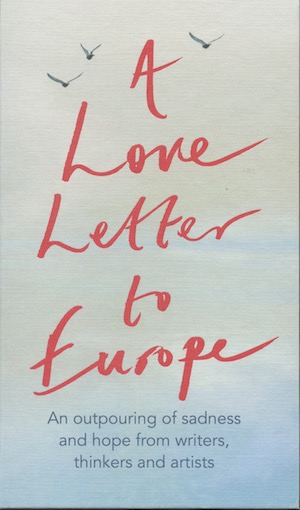 A
Love
Letter
to
Europe
An outpouring of sadness
and hope from writers,
thinkers and artists